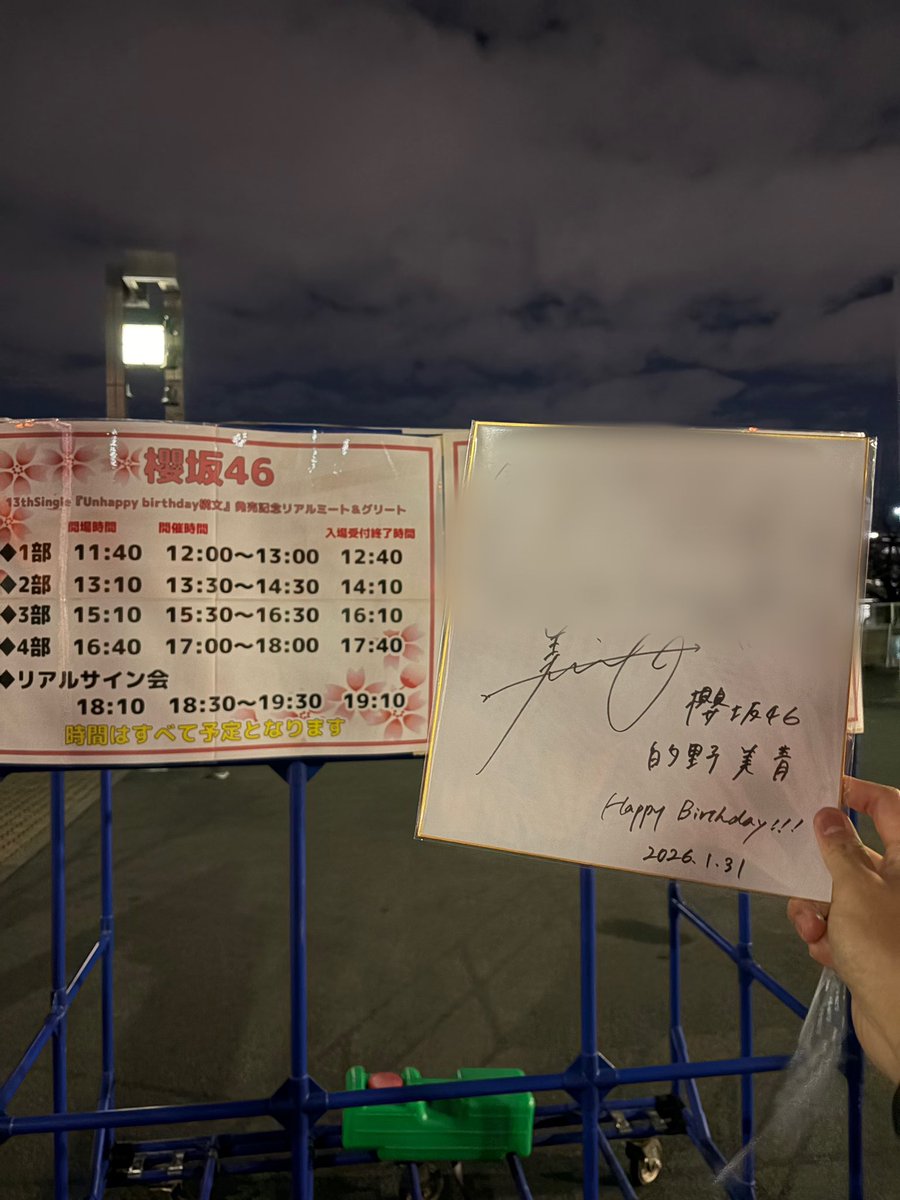 櫻坂46
13thSingle『Unhappy birthday構文』発売記念リアルミート＆グリート
開場時間 開催時間 入場受付終了時間
◆1部 11:40 12:00〜13:00 12:40
◆2部 13:10 13:30〜14:30 14:10
◆3部 15:10 15:30〜16:30 16:10
◆4部 16:40 17:00〜18:00 17:40
◆リアルサイン会
18:10 18:30〜19:30 19:10
時間はすべて予定となります
櫻坂46
的野美青
Happy Birthday!!!
2026.1.31